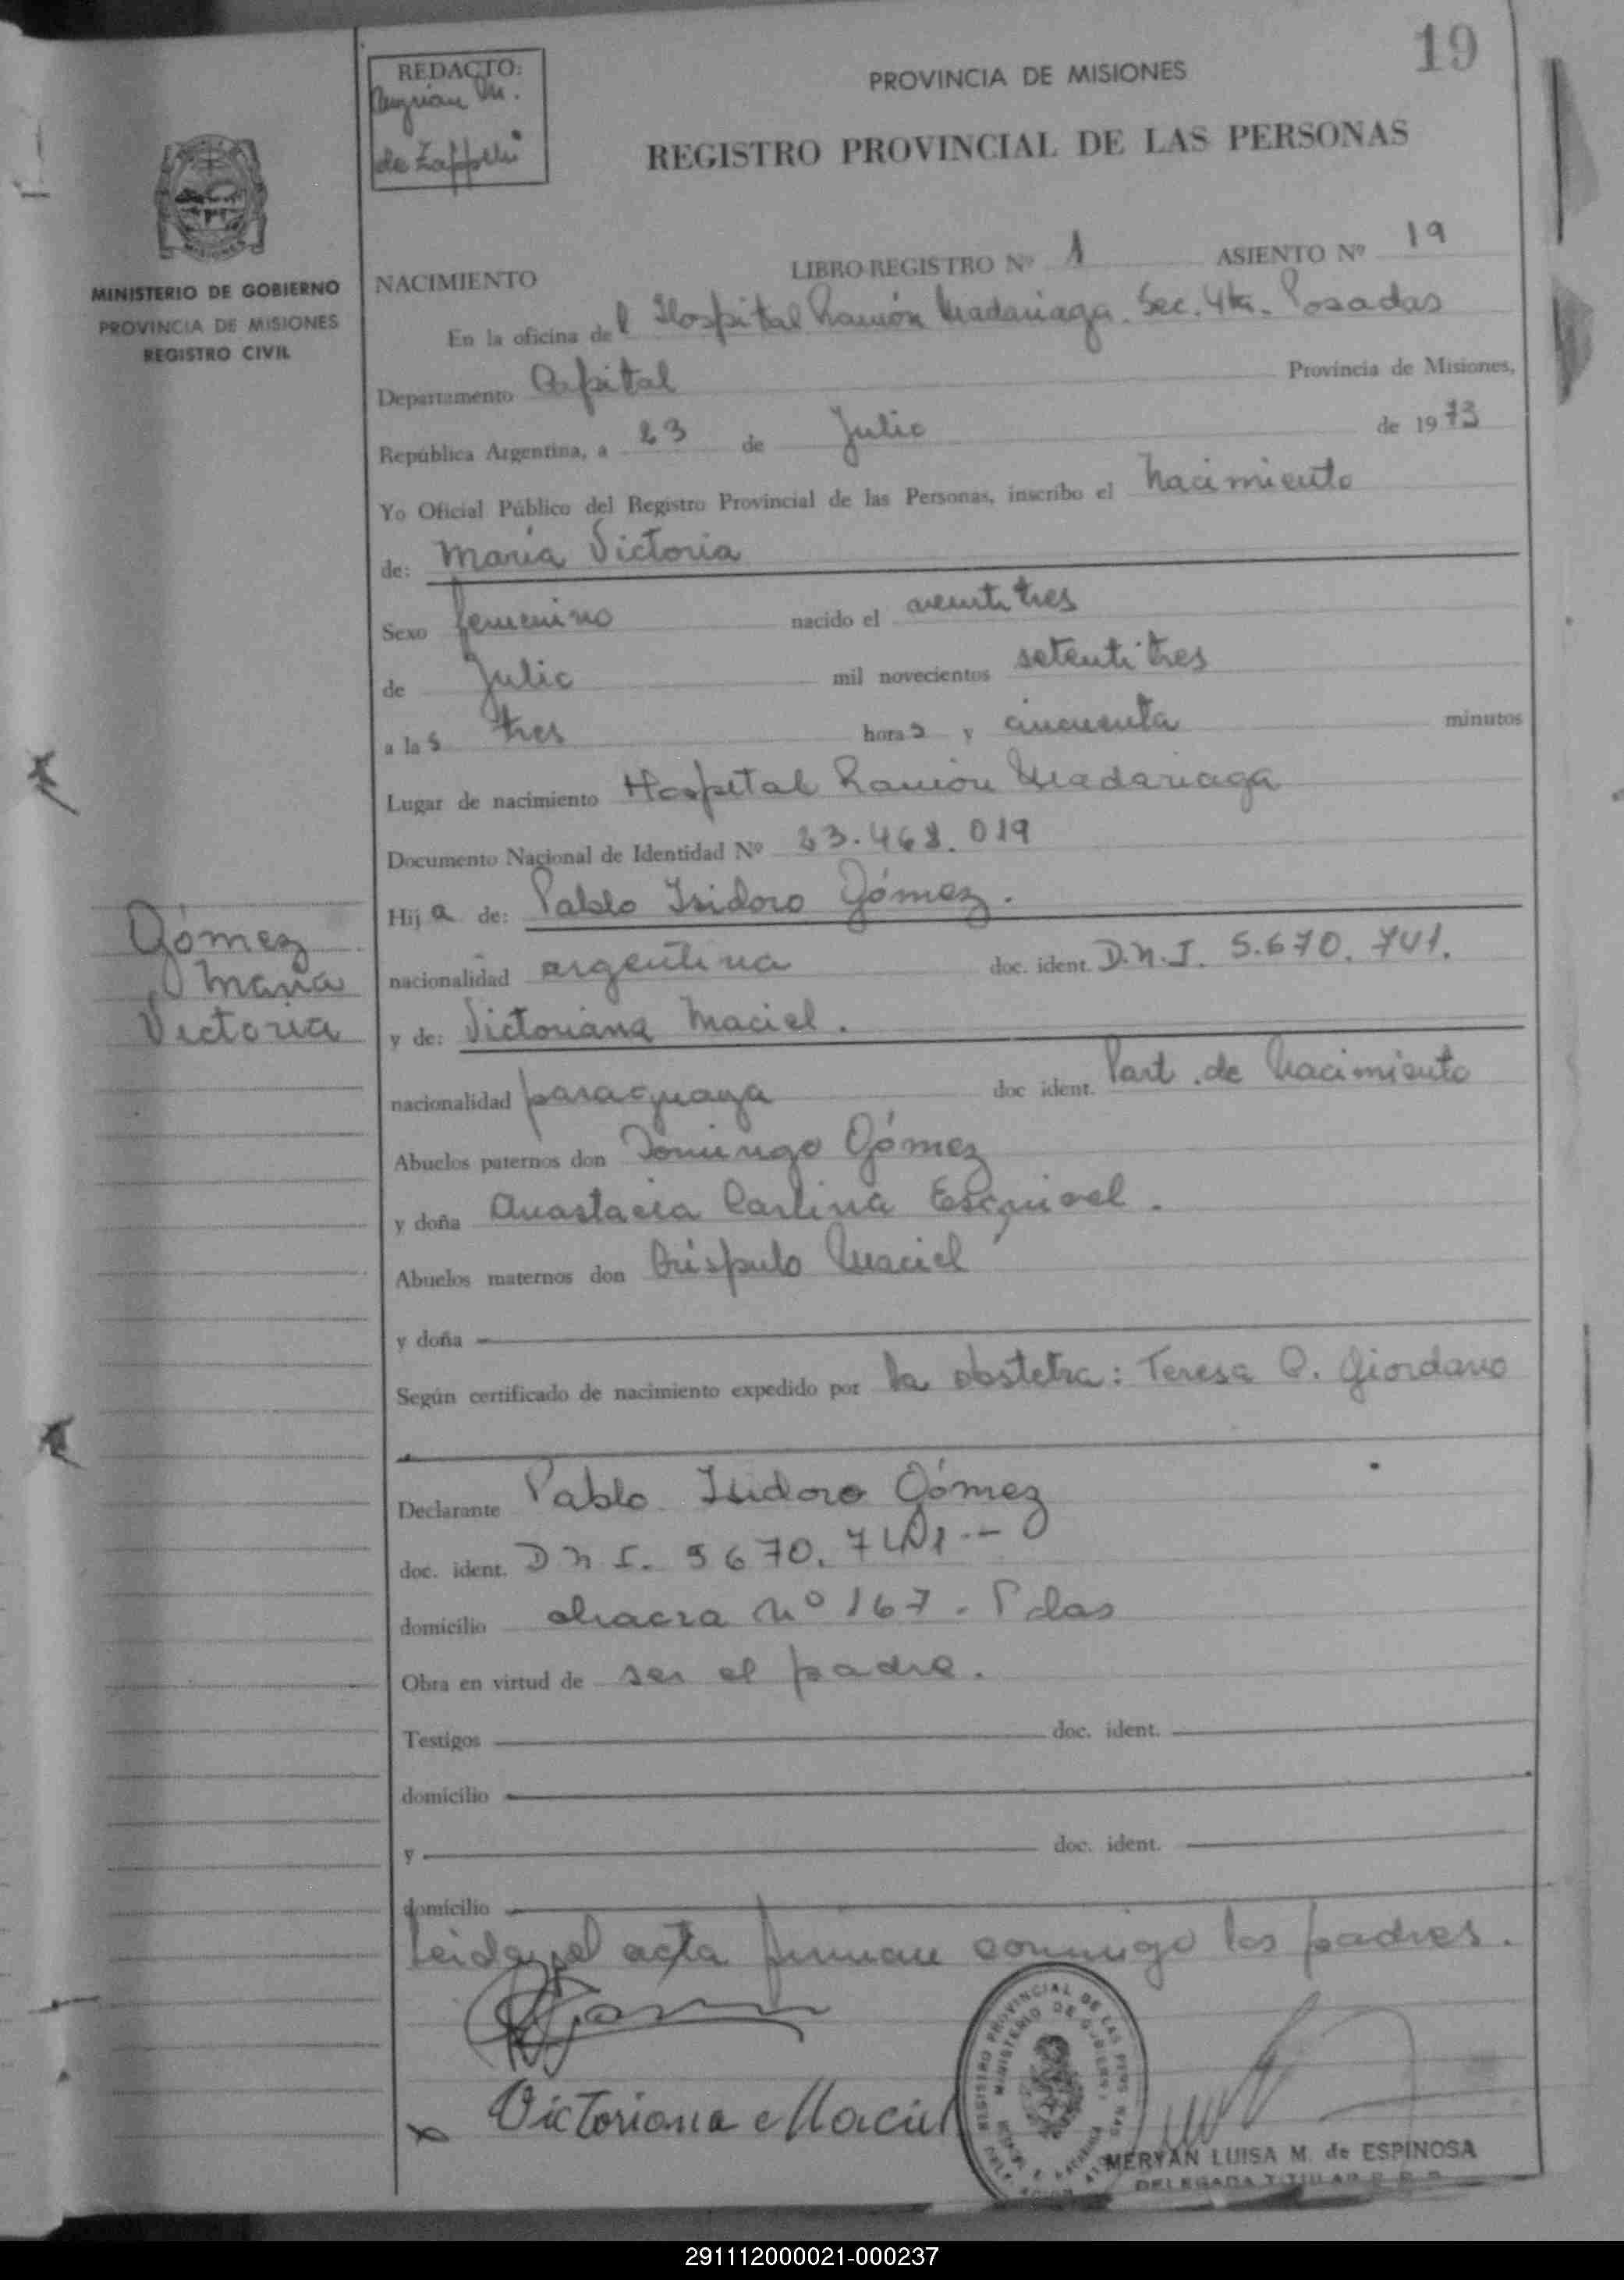 19
REDACTO:
de Zappelli
PROVINCIA DE MISIONES
REGISTRO PROVINCIAL DE LAS PERSONAS
MINISTERIO DE GOBIERNO
PROVINCIA DE MISIONES
REGISTRO CIVIL
NACIMIENTO LIBRO REGISTRO Nº 1 ASIENTO Nº 19
En la oficina del Hospital Ramón Madariaga. Sec. 4ta. Posadas
Departamento Capital Provincia de Misiones,
República Argentina, a 23 de Julio de 1973
Yo Oficial Público del Registro Provincial de las Personas, inscribo el Nacimiento
de: María Victoria
Sexo femenino nacido el veintitres
de Julio mil novecientos setentitres
a las tres horas y cincuenta minutos
Lugar de nacimiento Hospital Ramón Madariaga
Documento Nacional de Identidad Nº 23.468.019
Hija de: Pablo Isidoro Gómez.
Gómez
María
Victoria
nacionalidad argentina doc. ident. D.N.I. 5.670.741.
y de: Victoriana Maciel.
nacionalidad paraguaya doc ident. Part. de Nacimiento
Abuelos paternos don Domingo Gómez
y doña Anastacia Esquivel.
Abuelos maternos don Críspulo Maciel
y doña
Según certificado de nacimiento expedido por la obstetra: Teresa Q. Giordano
Declarante Pablo Isidoro Gómez
doc. ident. D N I. 5670.741.--
domicilio chacra Nº 167. Pdas
Obra en virtud de ser el padre.
Testigos doc. ident.
domicilio
y doc. ident.
domicilio
Leida el acta firman conmigo los padres.
x Victoriana Maciel
REGISTRO PROVINCIAL DE LAS PERSONAS
MINISTERIO DE GOBIERNO
MERYAN LUISA M. de ESPINOSA
DELEGADA TITULAR R. P. P.
291112000021-000237